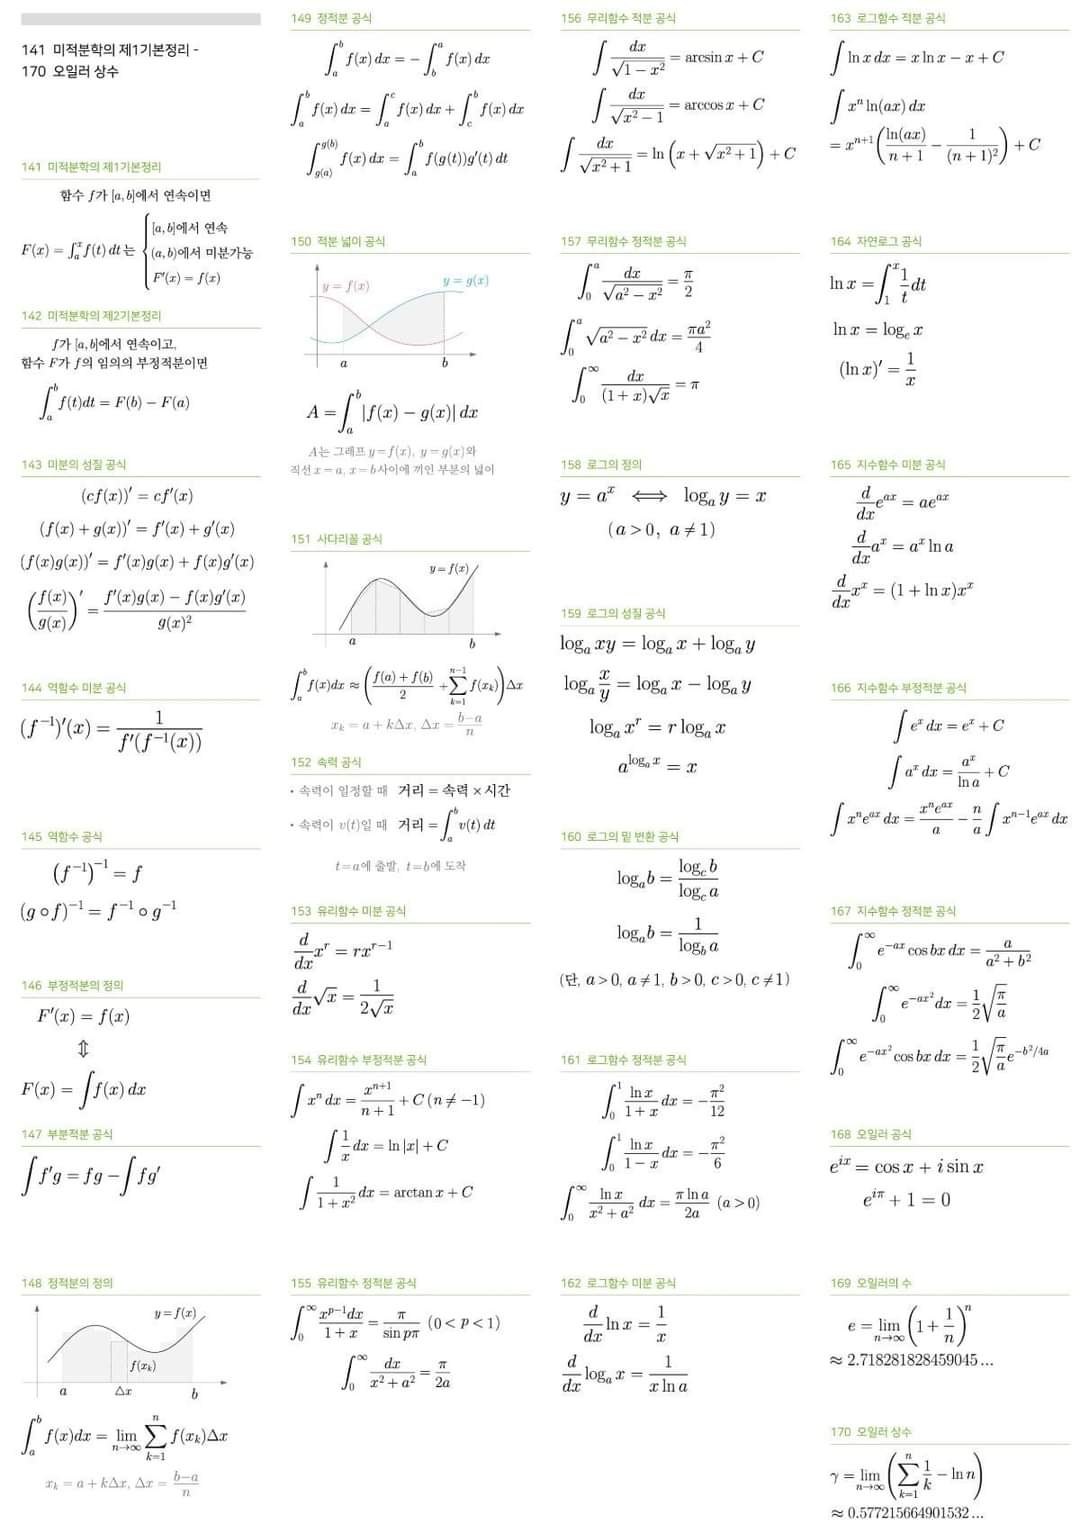 141 미적분학의 제1기본정리 -
170 오일러 상수
141 미적분학의 제1기본정리
함수 f가 [a, b]에서 연속이면
F(x) = ∫ₐˣ f(t) dt는 { [a, b]에서 연속
(a, b)에서 미분가능
F′(x) = f(x)
142 미적분학의 제2기본정리
f가 [a, b]에서 연속이고,
함수 F가 f의 임의의 부정적분이면
∫ₐᵇ f(t)dt = F(b) − F(a)
143 미분의 성질 공식
(cf(x))′ = cf′(x)
(f(x) + g(x))′ = f′(x) + g′(x)
(f(x)g(x))′ = f′(x)g(x) + f(x)g′(x)
(f(x)/g(x))′ = (f′(x)g(x) − f(x)g′(x))/g(x)²
144 역함수 미분 공식
(f⁻¹)′(x) = 1/f′(f⁻¹(x))
145 역함수 공식
(f⁻¹)⁻¹ = f
(g∘f)⁻¹ = f⁻¹∘g⁻¹
146 부정적분의 정의
F′(x) = f(x)
⇕
F(x) = ∫f(x) dx
147 부분적분 공식
∫f′g = fg − ∫fg′
148 정적분의 정의
y = f(x)
f(xₖ)
a Δx b
∫ₐᵇ f(x)dx = lim_{n→∞} ∑_{k=1}^{n} f(xₖ)Δx
xₖ = a + kΔx, Δx = (b−a)/n
149 정적분 공식
∫ₐᵇ f(x) dx = −∫_b^a f(x) dx
∫ₐᵇ f(x) dx = ∫ₐᶜ f(x) dx + ∫_c^b f(x) dx
∫_{g(a)}^{g(b)} f(x) dx = ∫ₐᵇ f(g(t))g′(t) dt
150 적분 넓이 공식
y = f(x) y = g(x)
a b
A = ∫ₐᵇ |f(x) − g(x)| dx
A는 그래프 y = f(x), y = g(x)와
직선 x = a, x = b사이에 끼인 부분의 넓이
151 사다리꼴 공식
y = f(x)
a b
∫ₐᵇ f(x)dx ≈ ((f(a) + f(b))/2 + ∑_{k=1}^{n−1} f(xₖ))Δx
xₖ = a + kΔx, Δx = (b−a)/n
152 속력 공식
• 속력이 일정할 때 거리 = 속력 × 시간
• 속력이 v(t)일 때 거리 = ∫ₐᵇ v(t) dt
t = a에 출발, t = b에 도착
153 유리함수 미분 공식
d/dx xʳ = rxʳ⁻¹
d/dx √x = 1/(2√x)
154 유리함수 부정적분 공식
∫xⁿ dx = xⁿ⁺¹/(n + 1) + C (n ≠ −1)
∫1/x dx = ln |x| + C
∫1/(1 + x²) dx = arctan x + C
155 유리함수 정적분 공식
∫₀^∞ xᵖ⁻¹dx/(1 + x) = π/sin pπ (0 < p < 1)
∫₀^∞ dx/(x² + a²) = π/2a
156 무리함수 적분 공식
∫dx/√(1 − x²) = arcsin x + C
∫dx/√(x² − 1) = arccos x + C
∫dx/√(x² + 1) = ln (x + √(x² + 1)) + C
157 무리함수 정적분 공식
∫₀ᵃ dx/√(a² − x²) = π/2
∫₀ᵃ √(a² − x²) dx = πa²/4
∫₀^∞ dx/((1 + x)√x) = π
158 로그의 정의
y = aˣ ⟺ logₐ y = x
(a > 0, a ≠ 1)
159 로그의 성질 공식
logₐ xy = logₐ x + logₐ y
logₐ x/y = logₐ x − logₐ y
logₐ xʳ = r logₐ x
a^{logₐ x} = x
160 로그의 밑 변환 공식
logₐ b = log_c b/log_c a
logₐ b = 1/log_b a
(단, a > 0, a ≠ 1, b > 0, c > 0, c ≠ 1)
161 로그함수 정적분 공식
∫₀¹ ln x/(1 + x) dx = −π²/12
∫₀¹ ln x/(1 − x) dx = −π²/6
∫₀^∞ ln x/(x² + a²) dx = π ln a/2a (a > 0)
162 로그함수 미분 공식
d/dx ln x = 1/x
d/dx logₐ x = 1/(x ln a)
163 로그함수 적분 공식
∫ln x dx = x ln x − x + C
∫xⁿ ln(ax) dx
= xⁿ⁺¹(ln(ax)/(n + 1) − 1/(n + 1)²) + C
164 자연로그 공식
ln x = ∫₁ˣ 1/t dt
ln x = logₑ x
(ln x)′ = 1/x
165 지수함수 미분 공식
d/dx eᵃˣ = aeᵃˣ
d/dx aˣ = aˣ ln a
d/dx xˣ = (1 + ln x)xˣ
166 지수함수 부정적분 공식
∫eˣ dx = eˣ + C
∫aˣ dx = aˣ/ln a + C
∫xⁿeᵃˣ dx = xⁿeᵃˣ/a − n/a ∫xⁿ⁻¹eᵃˣ dx
167 지수함수 정적분 공식
∫₀^∞ e^{−ax} cos bx dx = a/(a² + b²)
∫₀^∞ e^{−ax²} dx = 1/2 √(π/a)
∫₀^∞ e^{−ax²} cos bx dx = 1/2 √(π/a) e^{−b²/4a}
168 오일러 공식
e^{ix} = cos x + i sin x
e^{iπ} + 1 = 0
169 오일러의 수
e = lim_{n→∞} (1 + 1/n)ⁿ
≈ 2.718281828459045…
170 오일러 상수
γ = lim_{n→∞} (∑_{k=1}^{n} 1/k − ln n)
≈ 0.577215664901532…